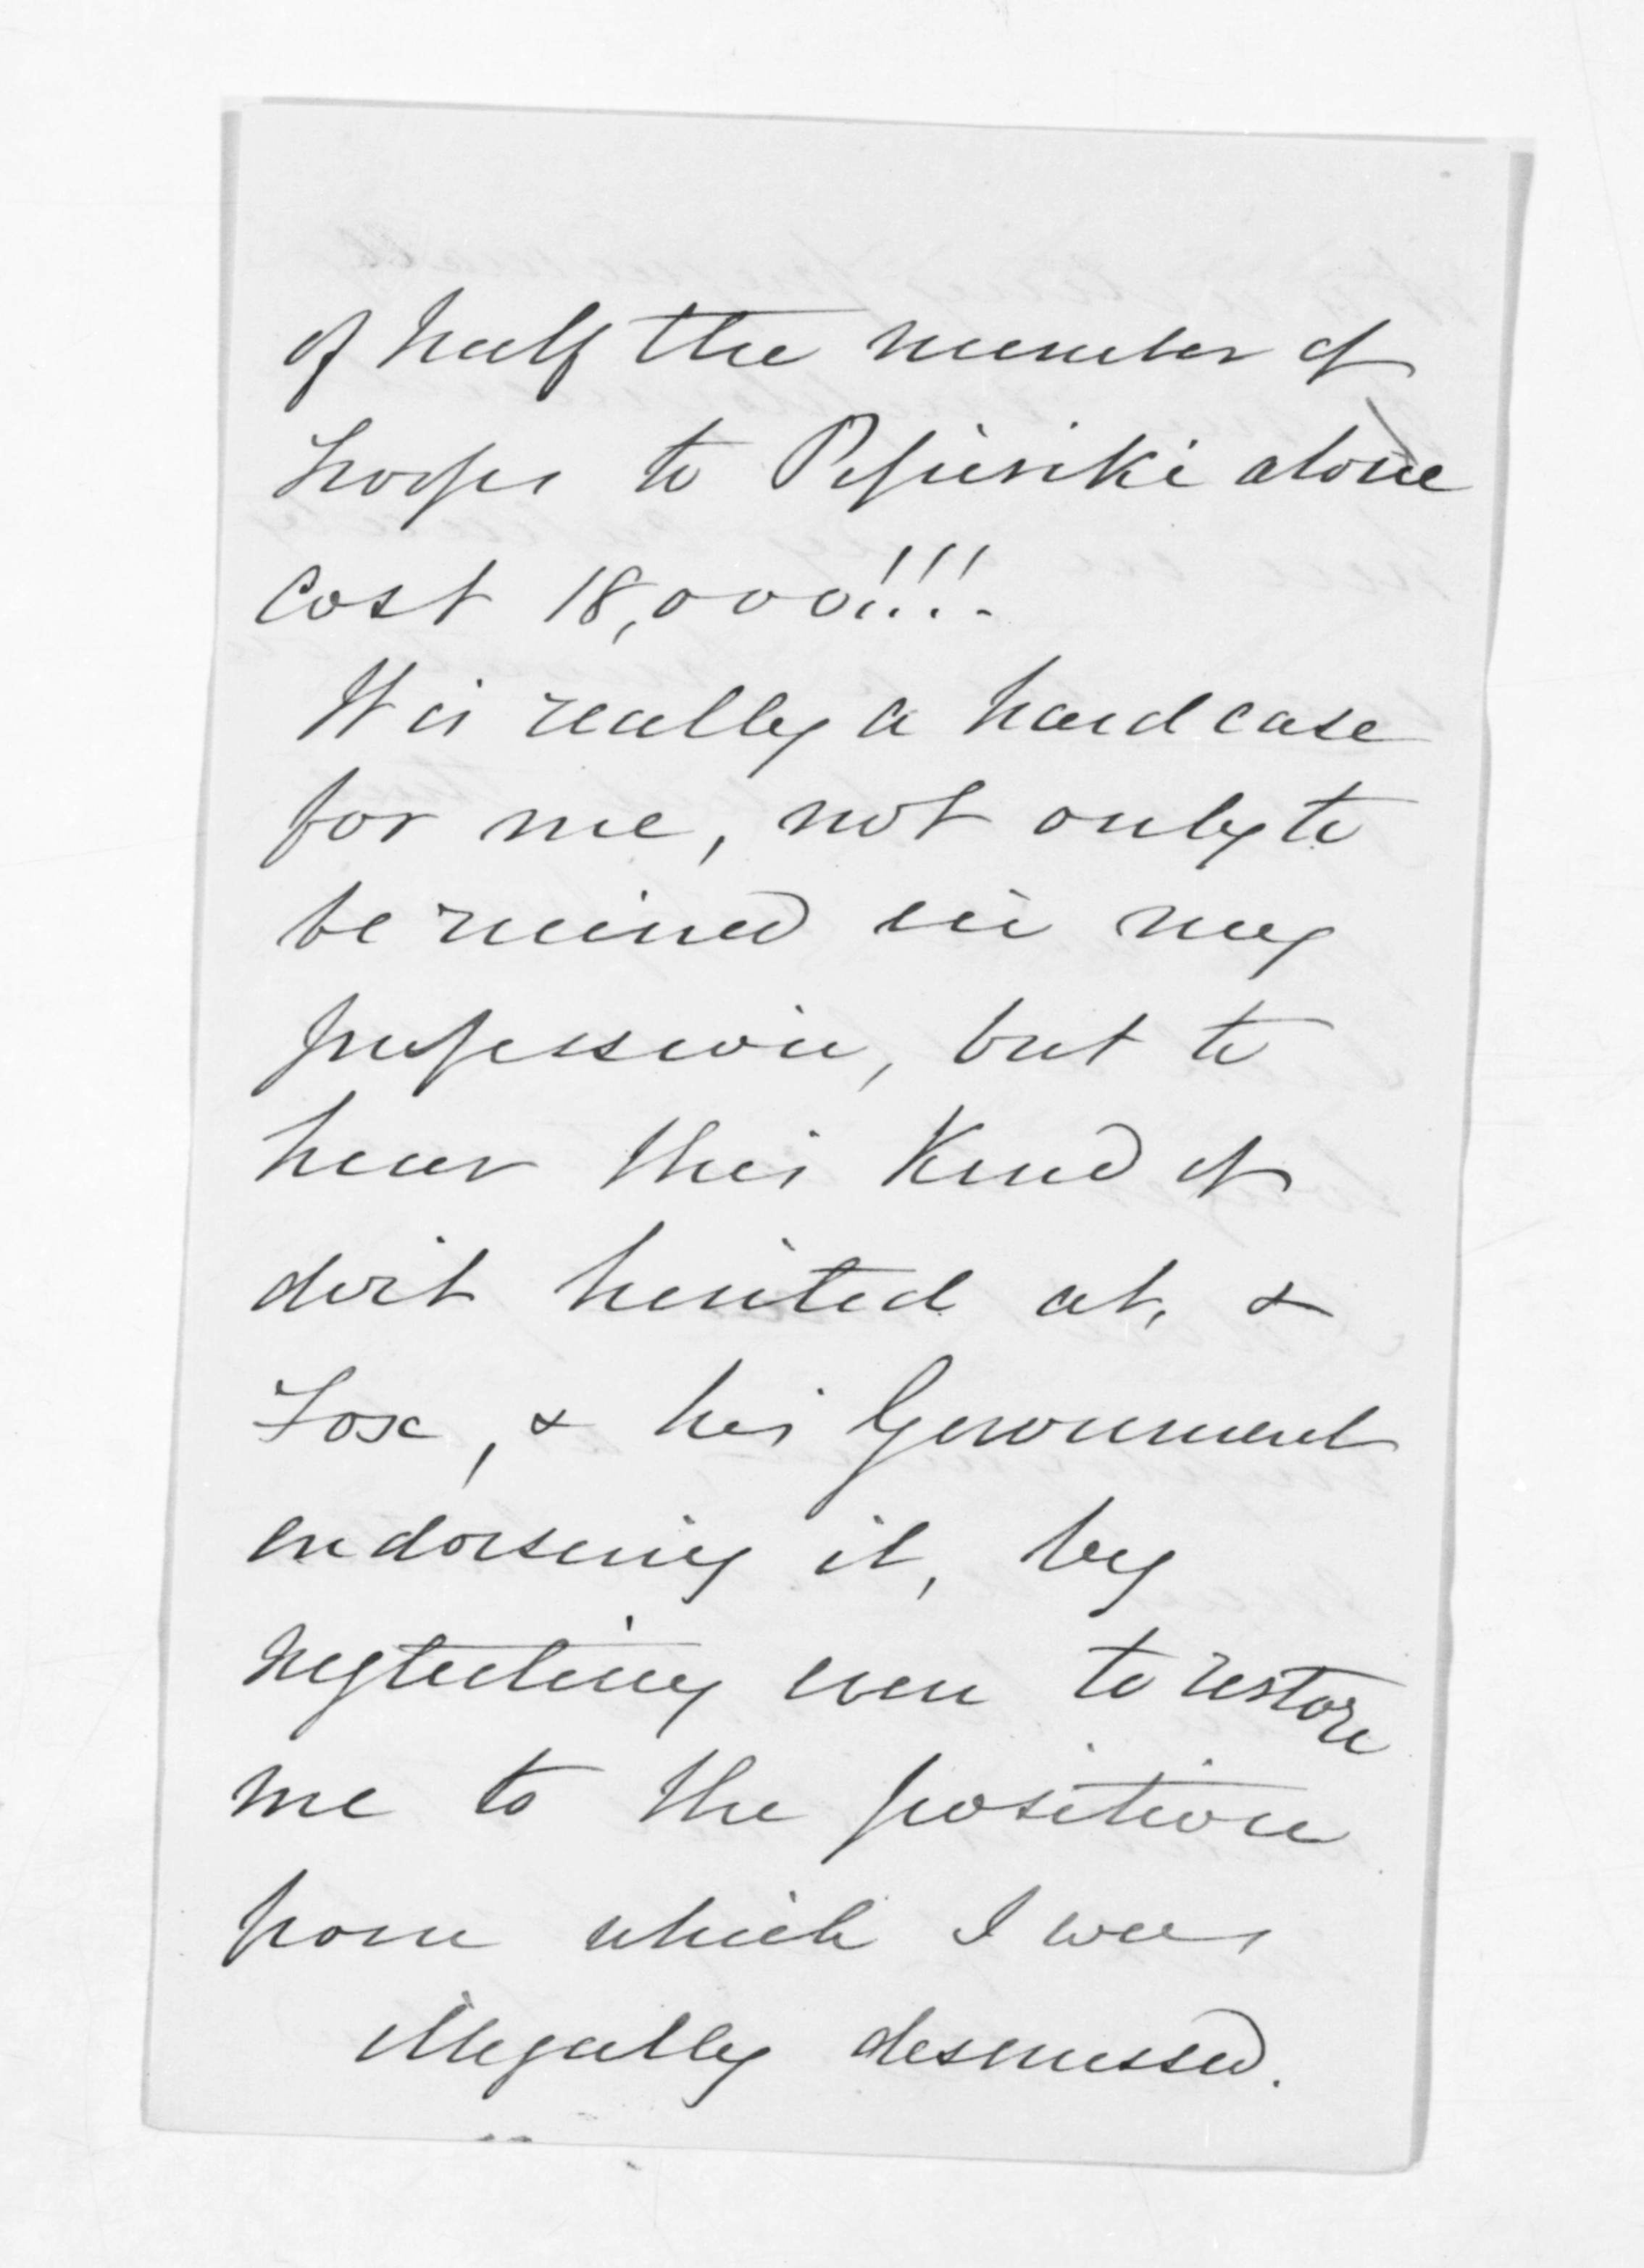 of half the number of
troops to Pipiriki alone
cost 18,000!!!.
It is really a hard case
for me, not only to
be ruined in my
profession, but to
hear this kind of
dirt hinted at, &
Fox, & his Government
endorsing it, by
neglecting even to restore
me to the position
from which I was
illegally dismissed.